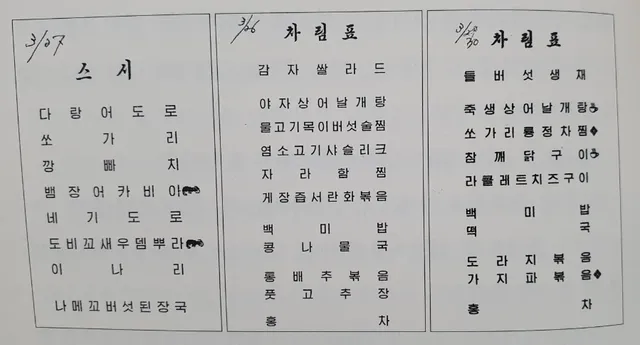 3/27
스시
다랑어도로
쏘가리
깡빠치
뱀장어카비아
네기도로
도비꼬새우뎀뿌라
이나리
나메꼬버섯된장국
3/26
차림표
감자쌀라드
야자상어날개탕
물고기목이버섯술찜
염소고기샤슬리크
자라할찜
게장즙서란화볶음
백미밥
콩나물국
통배추볶음
풋고추장
홍차
차림표
들버섯생채
죽생상어날개탕
쏘가리룡정차찜
참깨닭구이
라클레트치즈구이
백미밥
떡국
도라지볶음
가지파볶음
홍차